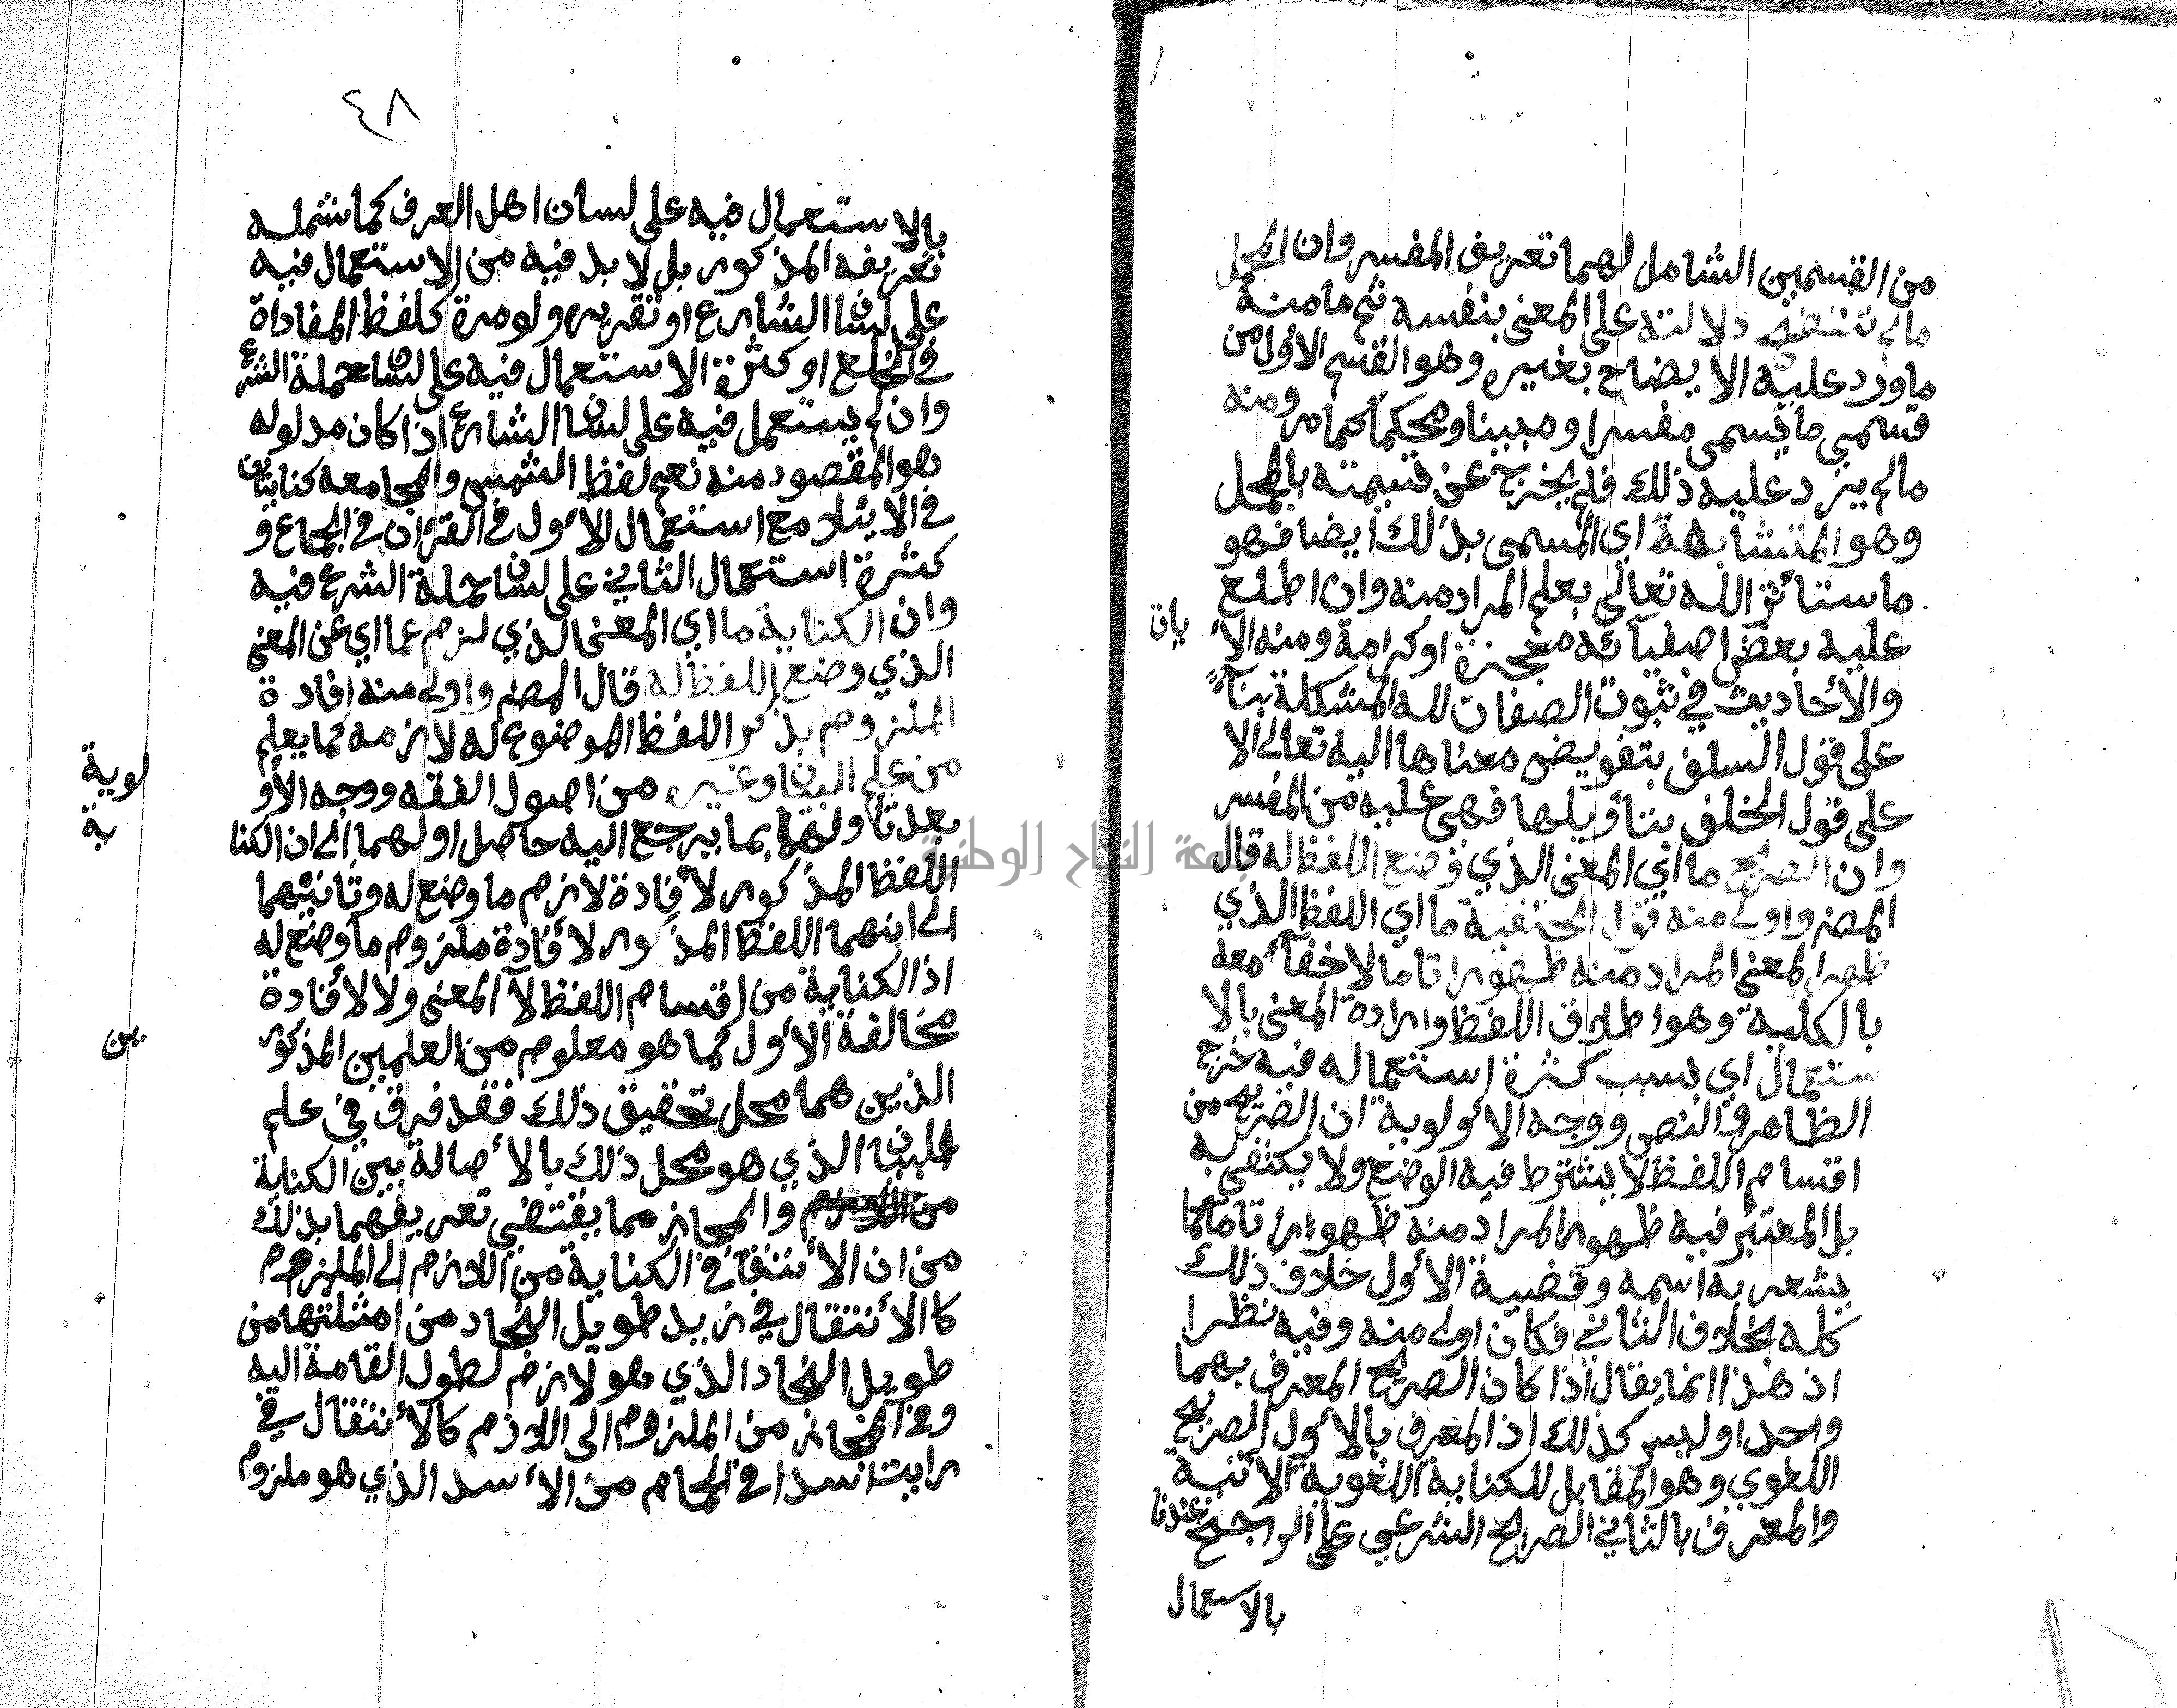 من القسمين الشامل لهما تعريف المفسر وان المجمل
مالم تتضح دلالته على المعنى بنفسه ثم ما منه
ماورد عليه الايضاح بغيره وهو القسم الاول من
قسمي ما يسمى مفسرا ومبينا ومحكما كما مر ومنه
مالم يرد عليه ذلك فلم يخرج عن قسيمته بالمجمل
وهو المتشابهة اي المسمى بذلك ايضا فهو
ما ستأثر الله تعالى بعلم المراد منه وان اطلع
عليه بعض اصفيآئه معجزة او كرامة ومنه الأ
يات
والأحاديث في ثبوت الصفات لله المشكلة بنآءً
على قول السلف بتفويض معناها اليه تعالى لا
على قول الخلف بتأويلها فهى عليه من المفسر
وان الصريح ما اي المعنى الذي وضع اللفظ له قال
المصـ واولى منه قول الحنفية ما اي اللفظ الذي
ظهر المعنى المراد منه ظهورا تاما لا خفآء معه
بالكلية وهو اطلاق اللفظ وارادة المعنى بالا
ستعمال اي بسبب كثرة استعماله فيه خرج
الظاهر والنص ووجه الأولوية ان الصريح من
اقسام اللفظ لا يشترط فيه الوضع ولا يكتفى به
بل المعتبر فيه ظهور المراد منه ظهورا تاما كما
يشعر به اسمه وقضية الأول خلاف ذلك
كله بخلاف الثاني فكان اولى منه وفيه نظرا
اذ هذا انما يقال اذا كان الصريح المعرف بهما
واحدا وليس كذلك اذ المعرف بالأول الصريح
اللغوي وهو المقابل للكناية اللغوية الأتية
والمعرف بالثاني الصريح الشرعي على الراجح عندنا
بالاستعمال
٤٨
بالاستعمال فيه على لسان اهل العرف كما شمله
تعريفه المذكور بل لا بد فيه من الاستعمال فيه
على لسان الشارع او تقريره ولو مرة كلفظ المفاداة
في الخلع او كثرة الاستعمال فيه على لسان حملة الشرع
وان لم يستعمل فيه على لسان الشارع اذا كان مدلوله
هو المقصود منه نعم لفظ الشمس والمجامعة كنايتان
في الايلاد مع استعمال الأول في القرآن في الجماع و
كثرة استعمال الثاني على لسان حملة الشرع فيه
وان الكناية ما اي المعنى الذي لزم عما اي عن المعنى
الذي وضع اللفظ له قال المصـ واولى منه افادة
الملزوم بذكر اللفظ الموضوع له لازمه كما يعلم
من علم البيان وغيره من اصول الفقه ووجه الأو
لوية
بعد تأولهما بما يرجع اليه حاصل اولهما الى ان الكنا
ية
اللفظ المذكور لأفادة لازم ما وضع له وثانيهما
الى انهما اللفظ المذكور لأفادة ملزوم ما وضع له
اذ الكناية من اقسام اللفظ لا المعنى ولا لأفادة
مخالفة الأول كما هو معلوم من العلمين المذكور
ين
الذين هما محل تحقيق ذلك فقد فرق في علم
البيان الذي هو محل ذلك بالأصالة بين الكناية
والمجاز مما يقتضي تعريفهما بذلك
من ان الأنتقال في الكناية من اللازم الى الملزوم
كالأنتقال في زيد طويل النجاد من امثلتها من
طويل النجاد الذي هو لازم لطول القامة اليه
وفي المجاز من الملزوم الى اللازم كالأنتقال في
رايت اسدا في الحمام من الأسد الذي هو ملزوم